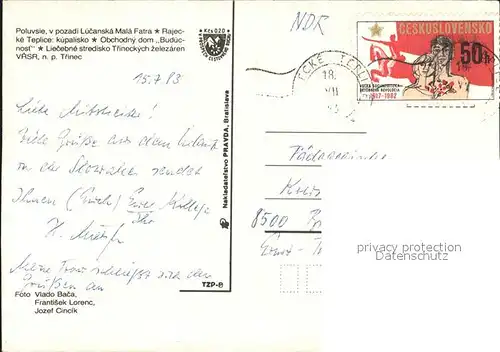 Poluvsie, v pozadí Lúčanská Malá Fatra * Rajec-
ké Teplice: kúpalisko * Obchodný dom "Budúc-
nosť" * Liečebné stredisko Třineckých železáren
VŘSR, n. p. Třinec
Kčs 0,20
15.7.83
Liebe
Viele Grüße aus dem Urlaub
in der Slowakei sendet
Ihnen (Euch) Euer Kollege
Ihr
Meine Frau schließt sich den
Grüßen an
Foto Vlado Bača,
František Lorenc,
Jozef Cincík
Nakladateľstvo PRAVDA, Bratislava
TZP-8
NDR
18.
VII
ČESKOSLOVENSKO
50h
1917-1982
8500
Ernst-
protected by copyright
Datenschutz